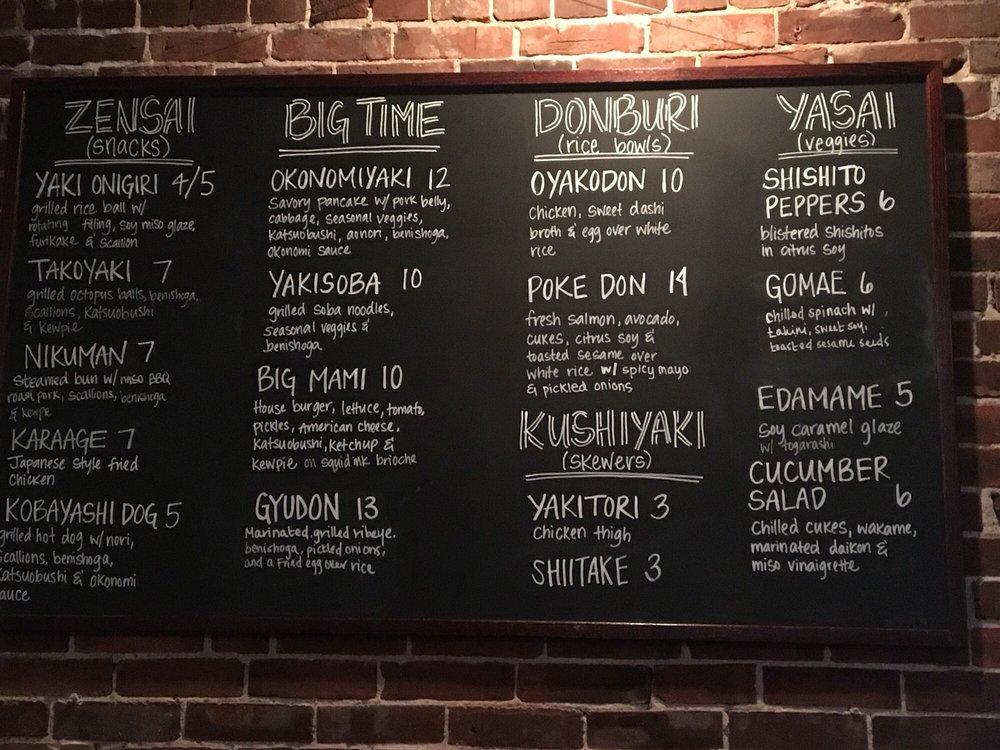 ZENSAI
(snacks)
YAKI ONIGIRI 4/5
grilled rice ball w/
rotating filling, soy miso glaze,
furikake & scallion
TAKOYAKI 7
grilled octopus balls, benishoga,
scallions, katsuobushi
& kewpie
NIKUMAN 7
Steamed bun w/ miso BBQ
roast pork, scallions, benishoga
& kewpie
KARAAGE 7
Japanese style fried
chicken
KOBAYASHI DOG 5
grilled hot dog w/ nori,
scallions, benishoga,
katsuobushi & okonomi
sauce
BIG TIME
OKONOMIYAKI 12
Savory pancake w/ pork belly,
cabbage, seasonal veggies,
katsuobushi, aonori, benishoga,
okonomi sauce
YAKISOBA 10
grilled soba noodles,
seasonal veggies &
benishoga
BIG MAMI 10
House burger, lettuce, tomato,
pickles, American cheese,
katsuobushi, ketchup &
kewpie on squid ink brioche
GYUDON 13
Marinated grilled ribeye,
benishoga, pickled onions,
and a fried egg over rice
DONBURI
(rice bowls)
OYAKODON 10
Chicken, sweet dashi
broth & egg over white
rice
POKE DON 14
fresh salmon, avocado,
cukes, citrus soy &
toasted sesame over
white rice w/ spicy mayo
& pickled onions
KUSHIYAKI
(skewers)
YAKITORI 3
Chicken thigh
SHIITAKE 3
YASAI
(veggies)
SHISHITO
PEPPERS 6
blistered shishitos
in citrus soy
GOMAE 6
chilled spinach w/
tahini, sweet soy,
toasted sesame seeds
EDAMAME 5
Soy caramel glaze
w/ togarashi
CUCUMBER
SALAD 6
Chilled cukes, wakame,
marinated daikon &
miso vinaigrette